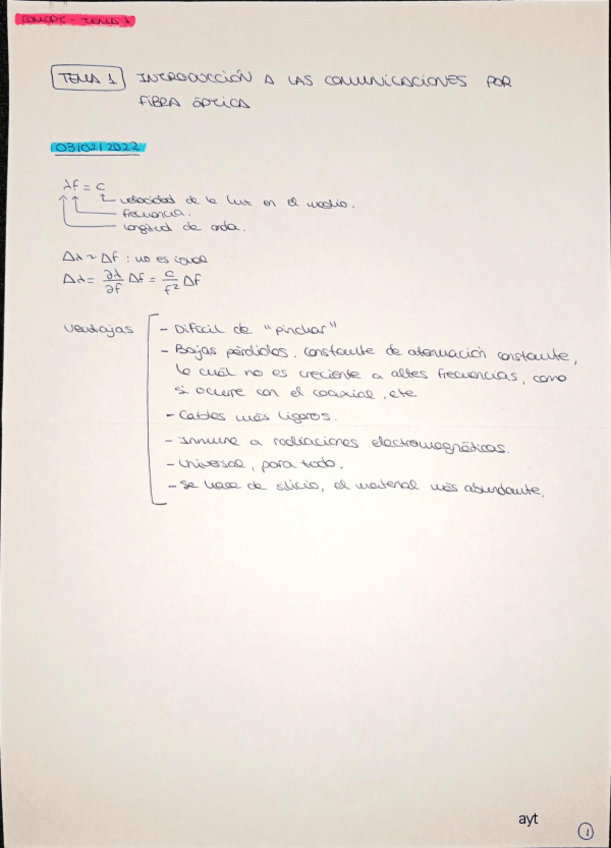 TEMA 1
TEMA 1 INTRODUCCIÓN A LAS COMUNICACIONES POR
FIBRA ÓPTICA
03/02/2022
λf = c
velocidad de la luz en el medio.
frecuencia.
longitud de onda.
Δλ ~ Δf : no es igual
Δλ = ∂λ/∂f Δf = c/f² Δf
Ventajas
- Difícil de "pinchar"
- Bajas pérdidas. constante de atenuación constante,
lo cuál no es creciente a altas frecuencias, como
si ocurre con el coaxial, etc
- Cables más ligeros.
- Inmune a radiaciones electromagnéticas.
- Universal, para todo.
- Se hace de silicio, el material más abundante.
ayt
1